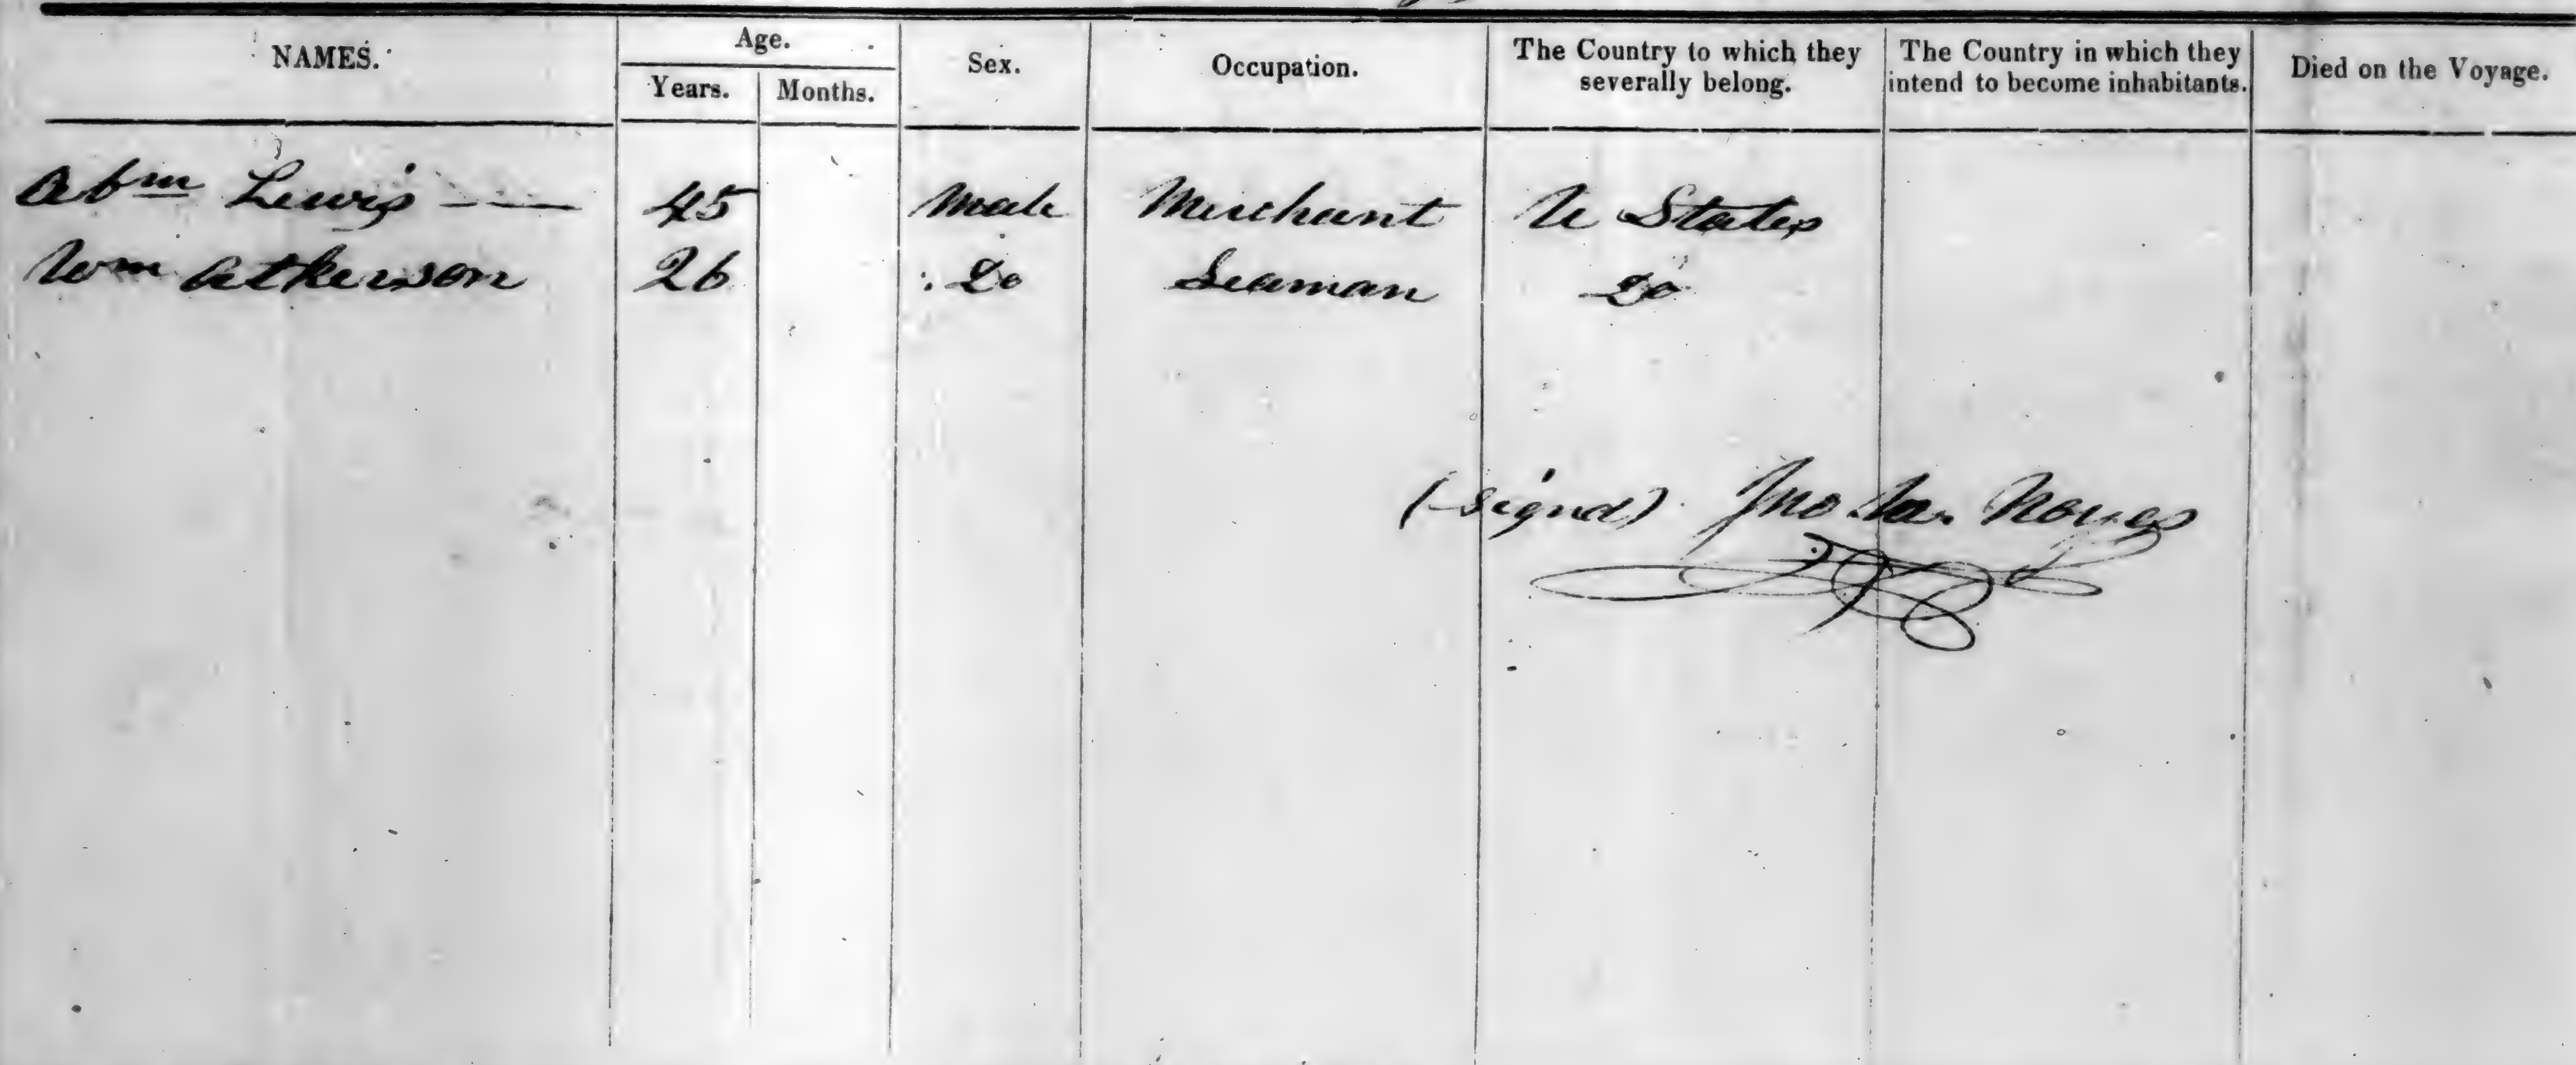 NAMES. Age. Sex. Occupation. The Country to which they severally belong. The Country in which they intend to become inhabitants. Died on the Voyage.
Years. Months.
Abm Lewis 45 Male Merchant U States
Wm Atkerson 26 Do Seaman Do
(signd) Jno Noyes